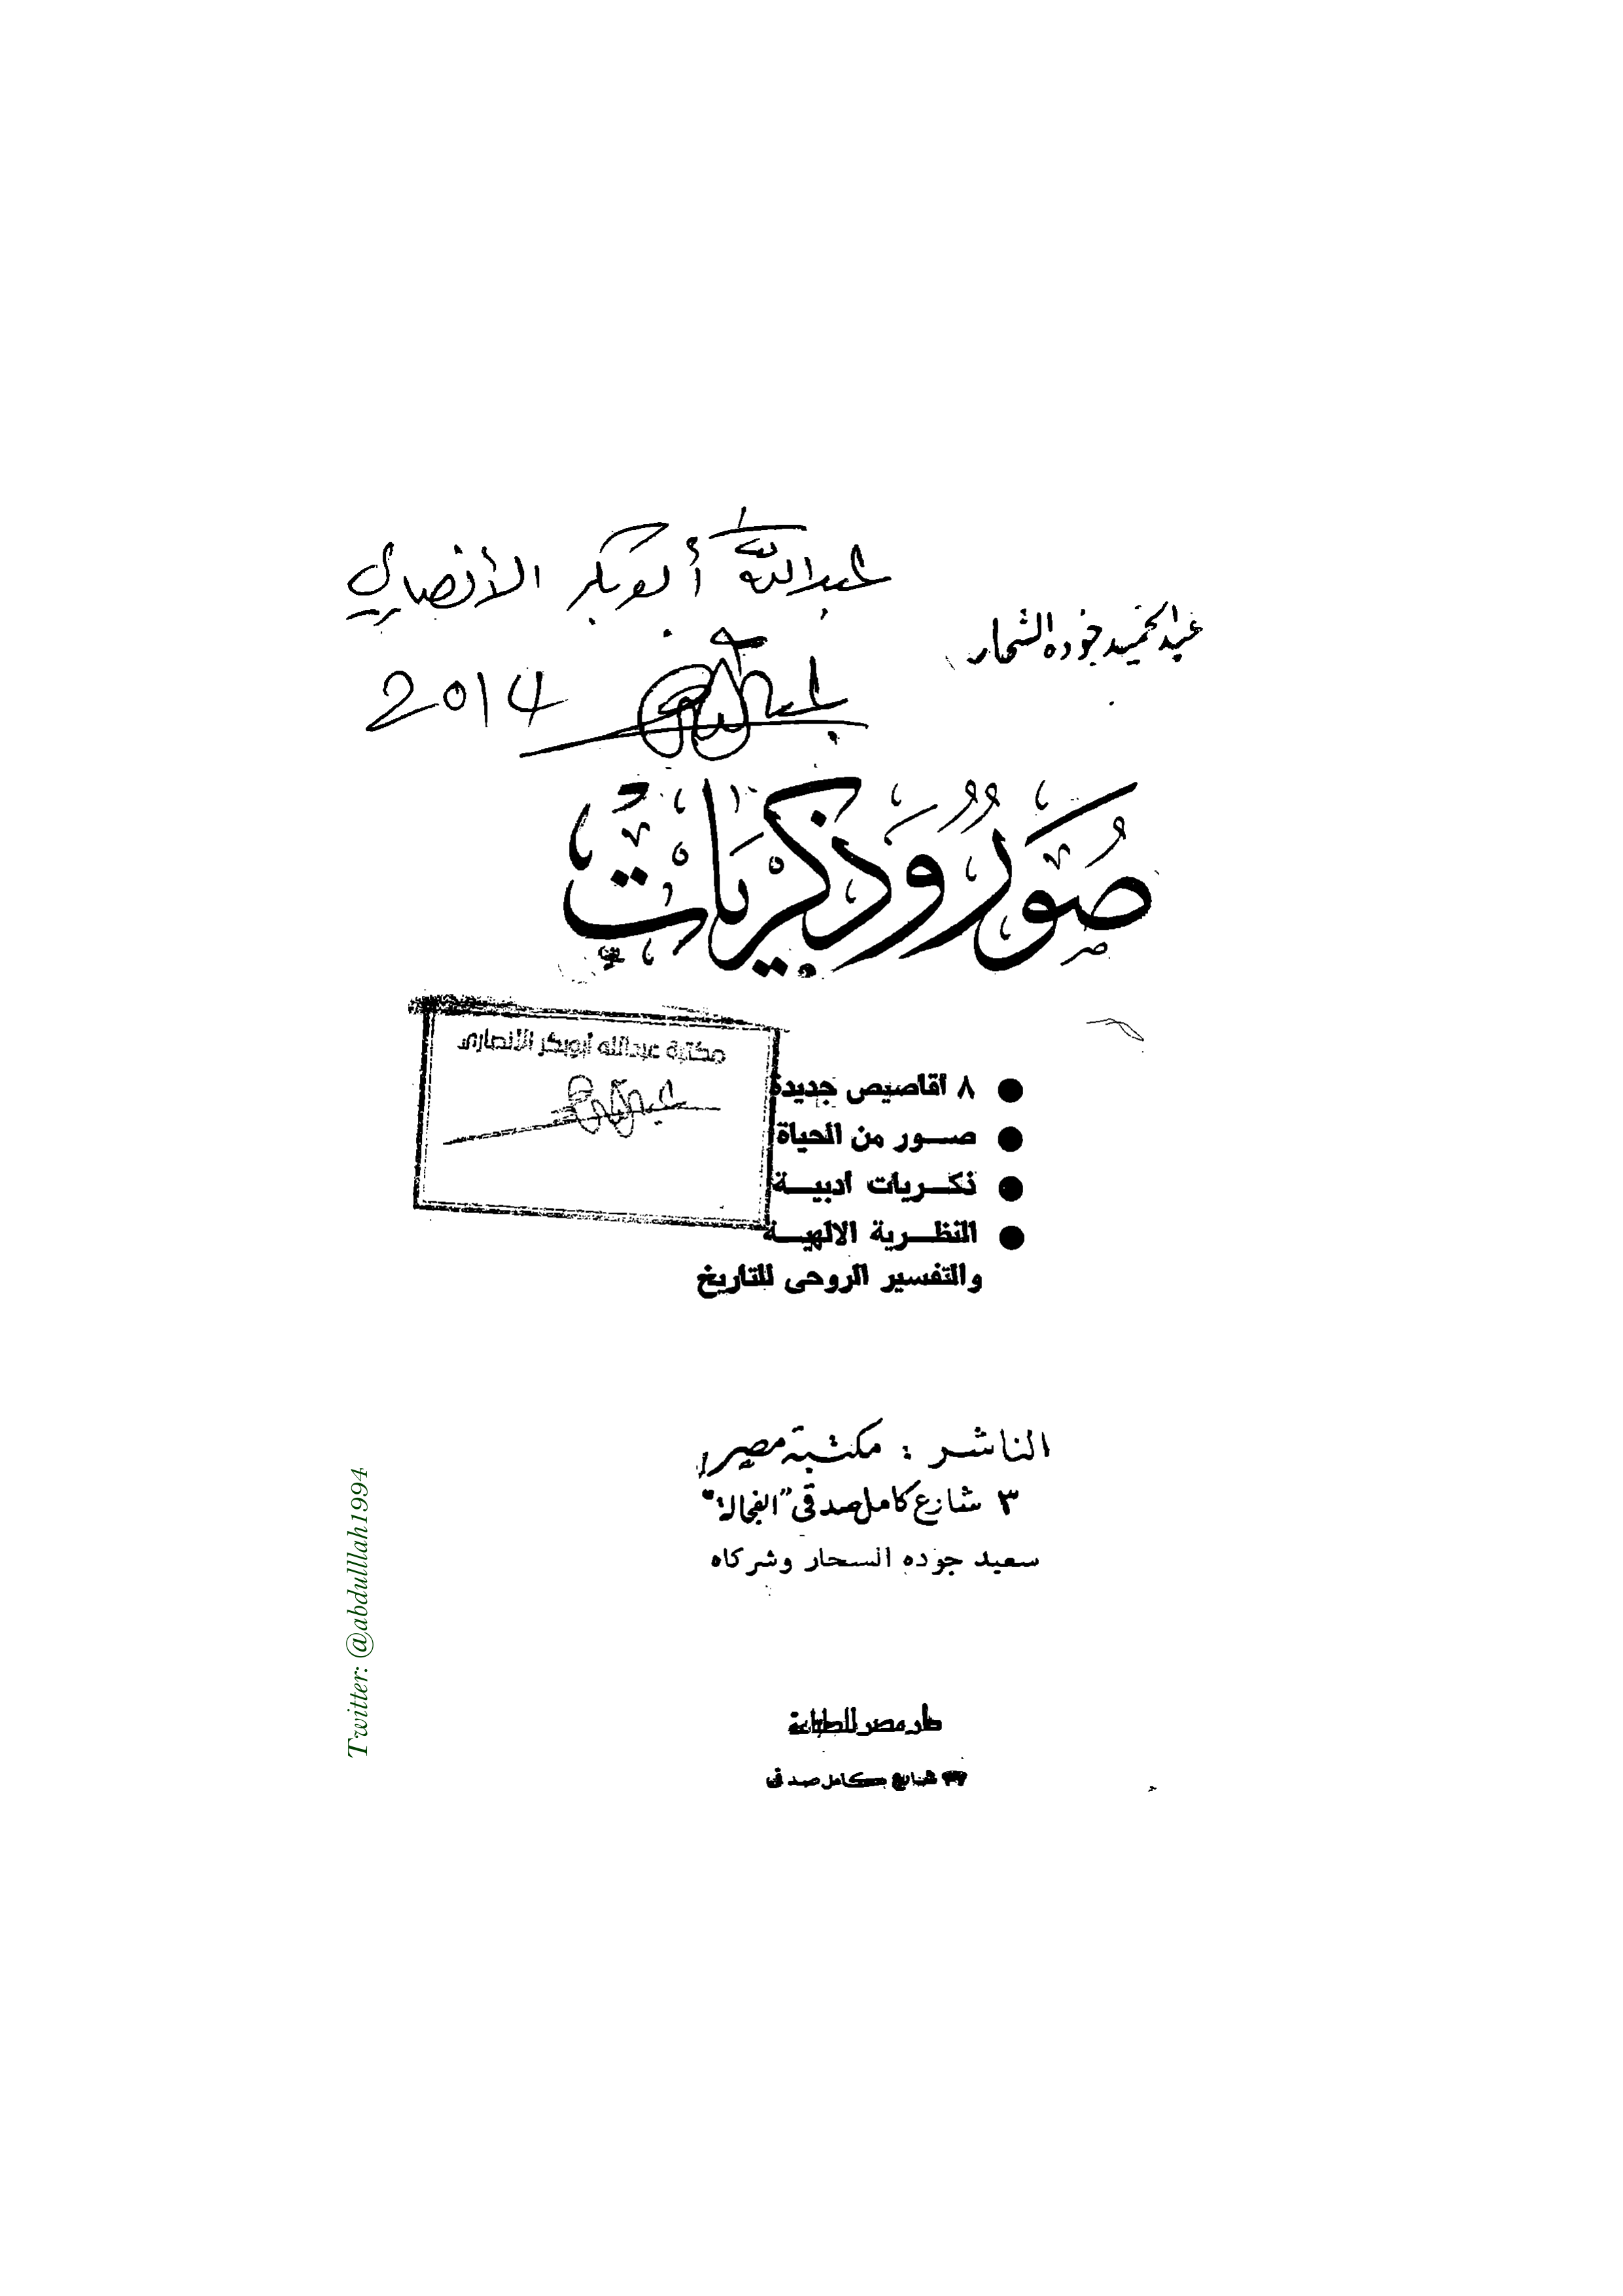 عبدالله أبوبكر الأنصاري
عبد الحميد جوده السحار
2014
صُوَرٌ وَذِكْرَيَاتٌ
مكتبة عبدالله أبوبكر الأنصارى
● ٨ أقاصيص جديدة
● صـــور من الحياة
● ذكـــريات أدبيـــة
● النظـــرية الالهيـــة
والتفسير الروحى للتاريخ
الناشر : مكتبة مصر
٣ شارع كامل صدقى "الفجالة"
سعيد جوده السحار وشركاه
دار مصر للطباعة
٣٧ شارع كامل صدقى
Twitter: @abdulllah1994